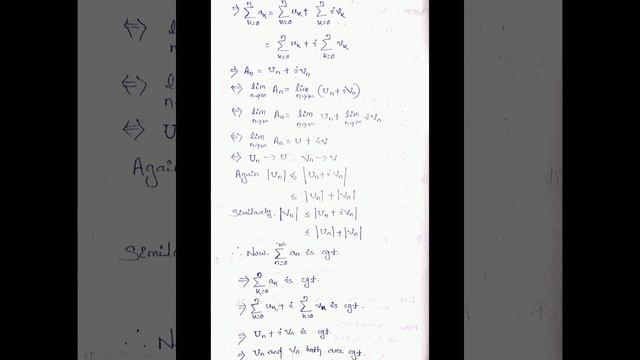 ⇒ ∑_{k=0}^{n} a_k = ∑_{k=0}^{n} u_k + ∑_{k=0}^{n} i v_k
= ∑_{k=0}^{n} u_k + i ∑_{k=0}^{n} v_k
⇒ A_n = U_n + i V_n
⇔ lim_{n→∞} A_n = lim_{n→∞} (U_n + i V_n)
⇔ lim_{n→∞} A_n = lim_{n→∞} U_n + lim_{n→∞} i V_n
⇔ lim_{n→∞} A_n = U + i V
⇔ U_n → U . V_n → V
Again |U_n| ≤ |U_n + i V_n|
≤ |U_n| + |V_n|
Similarly. |V_n| ≤ |U_n + i V_n|
≤ |U_n| + |V_n|
∴ Now. ∑_{n=0}^{∞} a_n is cgt.
⇒ ∑_{k=0}^{n} a_k is cgt.
⇒ ∑_{k=0}^{n} u_k + i ∑_{k=0}^{n} v_k is cgt.
⇒ U_n + i V_n is cgt.
⇒ U_n and V_n both are cgt.